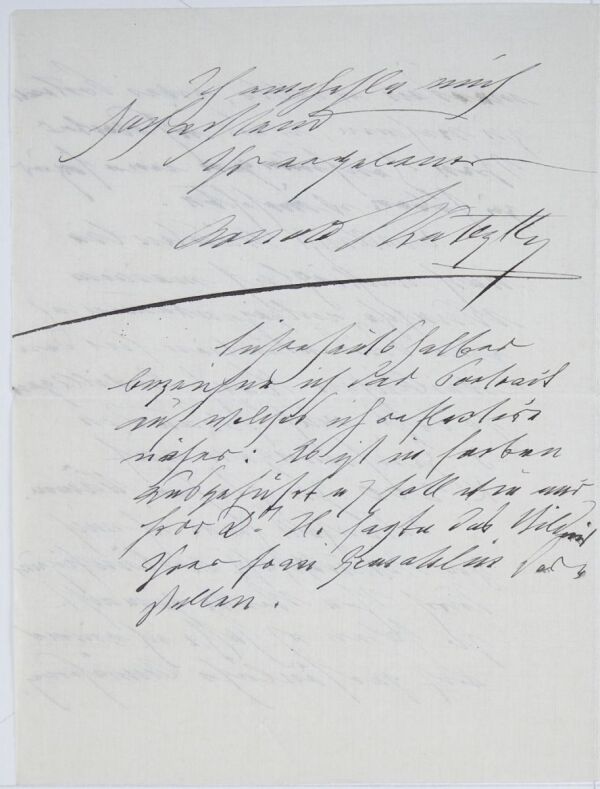 Ich empfehle mich
hochachtend
Ihr ergebener
Arnold Skutezky
Sicherheitshalber
bezeichne ich das Portrait
auf welches ich reflectire
näher: Es ist in Farben
ausgeführt u soll wie mir
Herr Dr. H. sagte das Bildniß
Ihrer Frau Gemahlin dar
stellen.